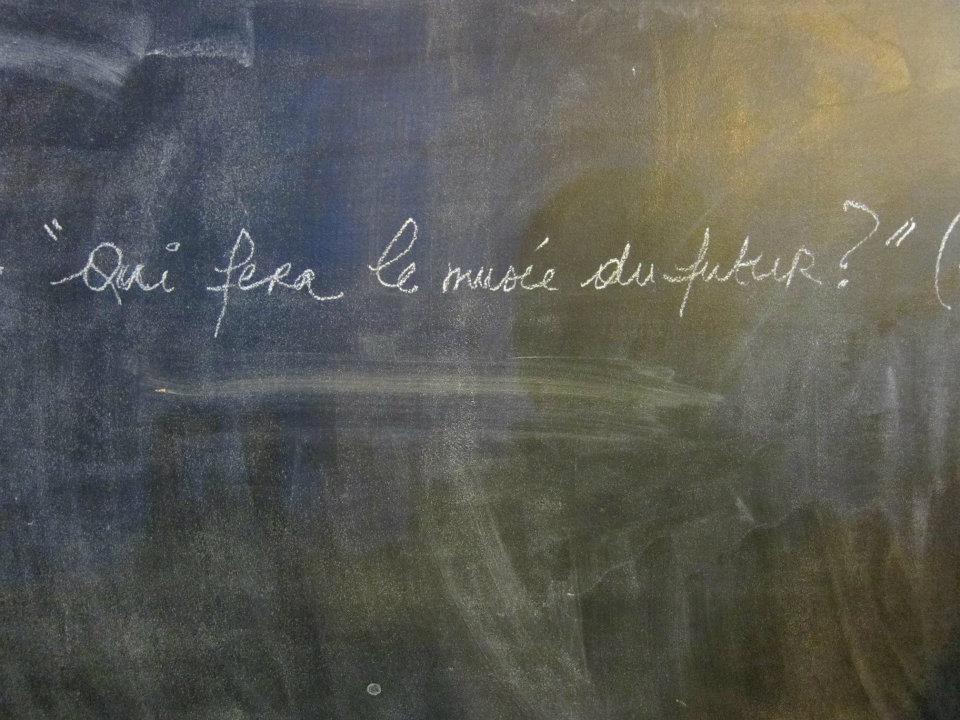 "Qui fera le musée du futur?" (